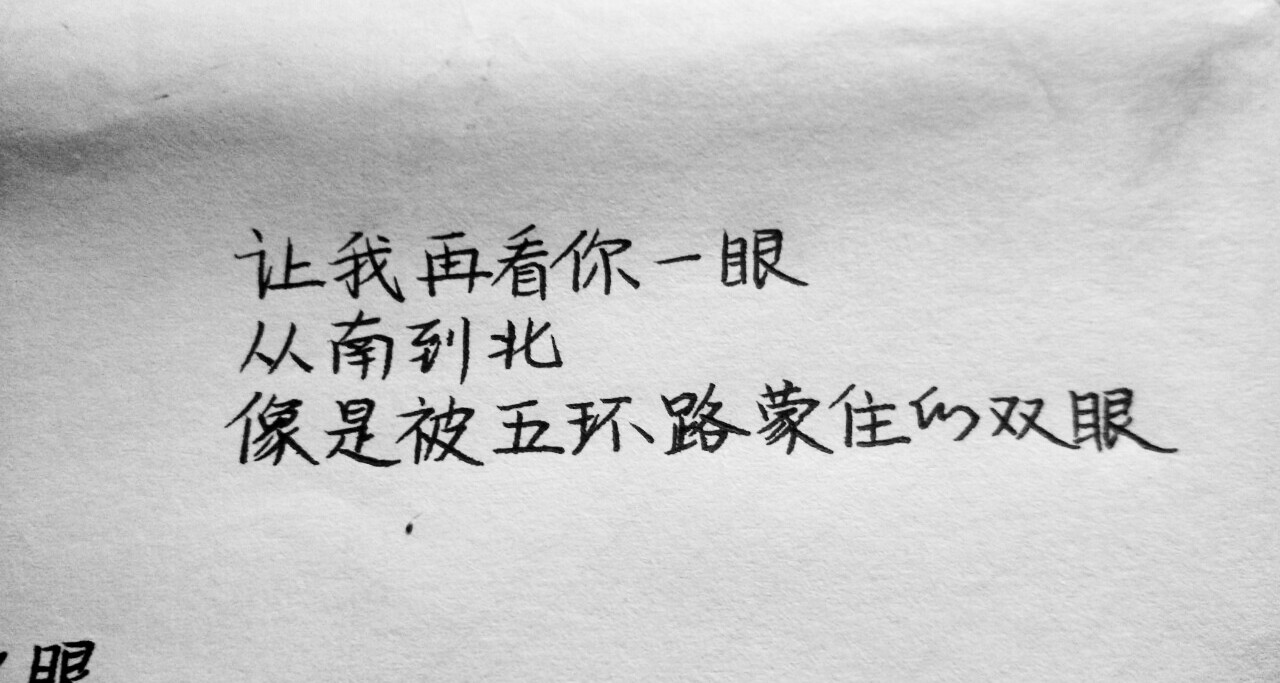 让我再看你一眼
从南到北
像是被五环路蒙住的双眼
眼